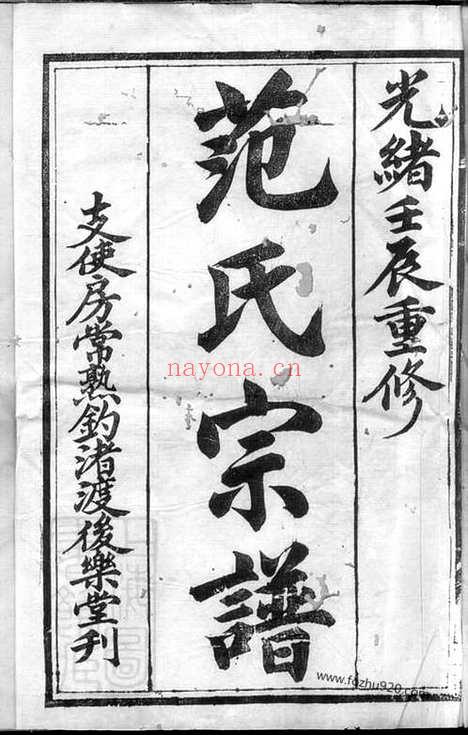 光緒壬辰重修
范氏宗譜
支使房常熟釣渚渡後樂堂刊
nayona.cn
www.fgzhu920.com